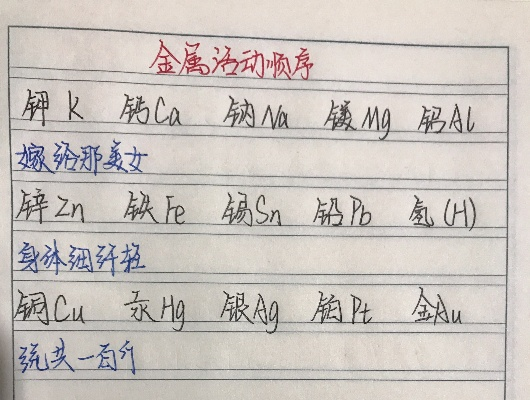 金属活动顺序
钾 K 钙 Ca 钠 Na 镁 Mg 铝 Al
嫁给那美女
锌 Zn 铁 Fe 锡 Sn 铅 Pb 氢 (H)
身体细纤轻
铜 Cu 汞 Hg 银 Ag 铂 Pt 金 Au
统共一百斤